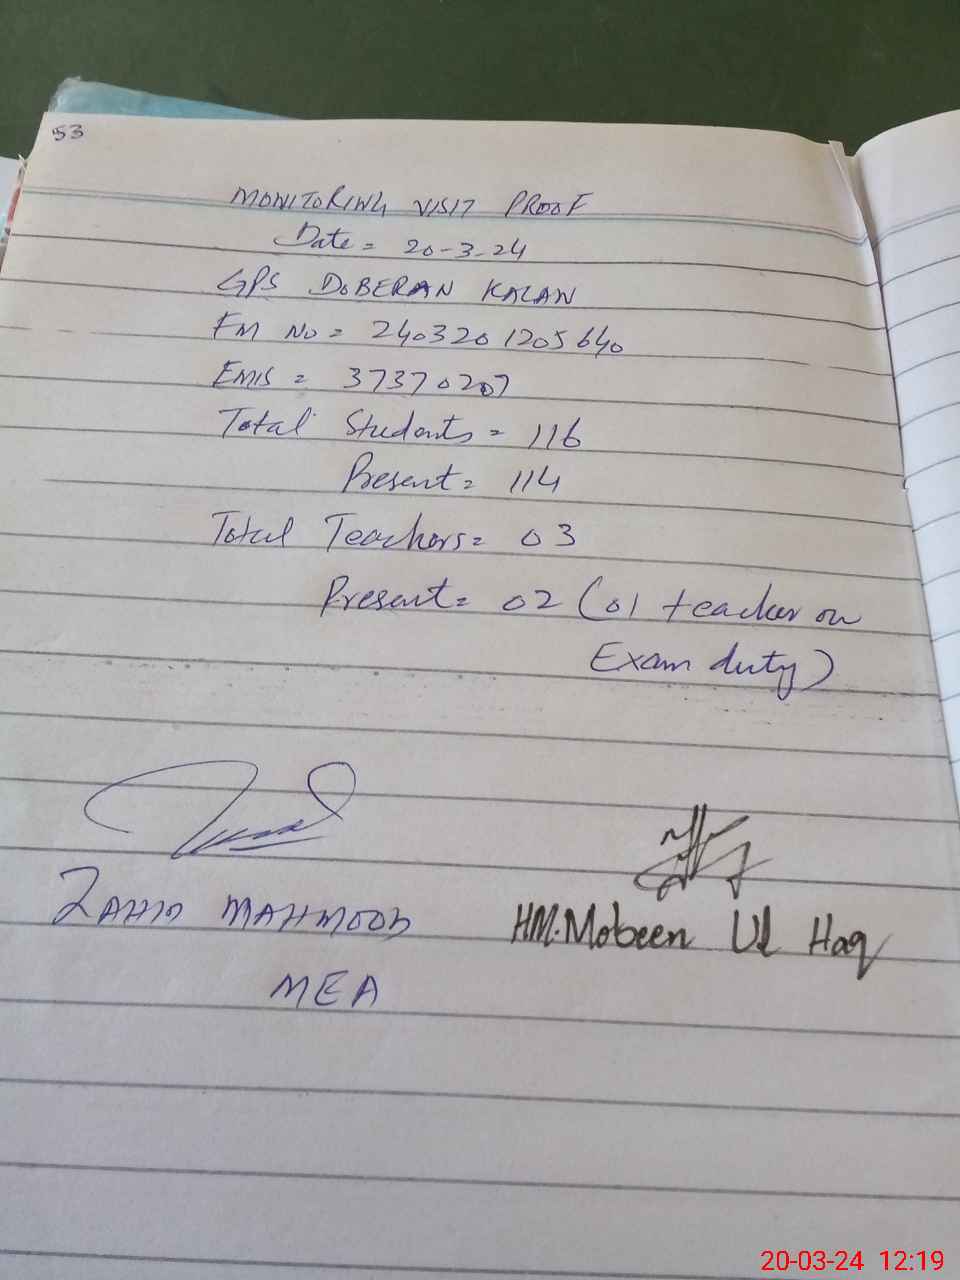 53
MONITORING VISIT PROOF
Date = 20-3-24
GPS DOBERAN KALAN
FM No = 240320 1205640
EMIS = 37370207
Total Students = 116
Present = 114
Total Teachers = 03
Present = 02 (01 teacher on
Exam duty)
ZAHID MAHMOOD
MEA
HM. Mobeen Ul Haq
20-03-24 12:19